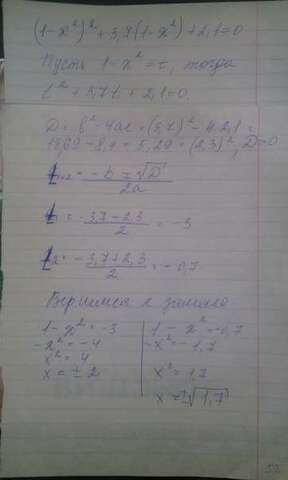 (1-x²)² + 3,7(1-x²) + 2,1 = 0
Пусть 1-x² = t, тогда
t² + 3,7t + 2,1 = 0.
D = b² - 4ac = (3,7)² - 4·2,1 =
13,69 - 8,4 = 5,29 = (2,3)², D>0
t₁,₂ = (-b ± √D) / 2a
t₁ = (-3,7-2,3) / 2 = -3
t₂ = (-3,7+2,3) / 2 = -0,7
Вернимся к замене
1-x² = -3
-x² = -4
x² = 4
x = ±2
1-x² = -0,7
-x² = -1,7
x² = 1,7
x = ±√1,7
52